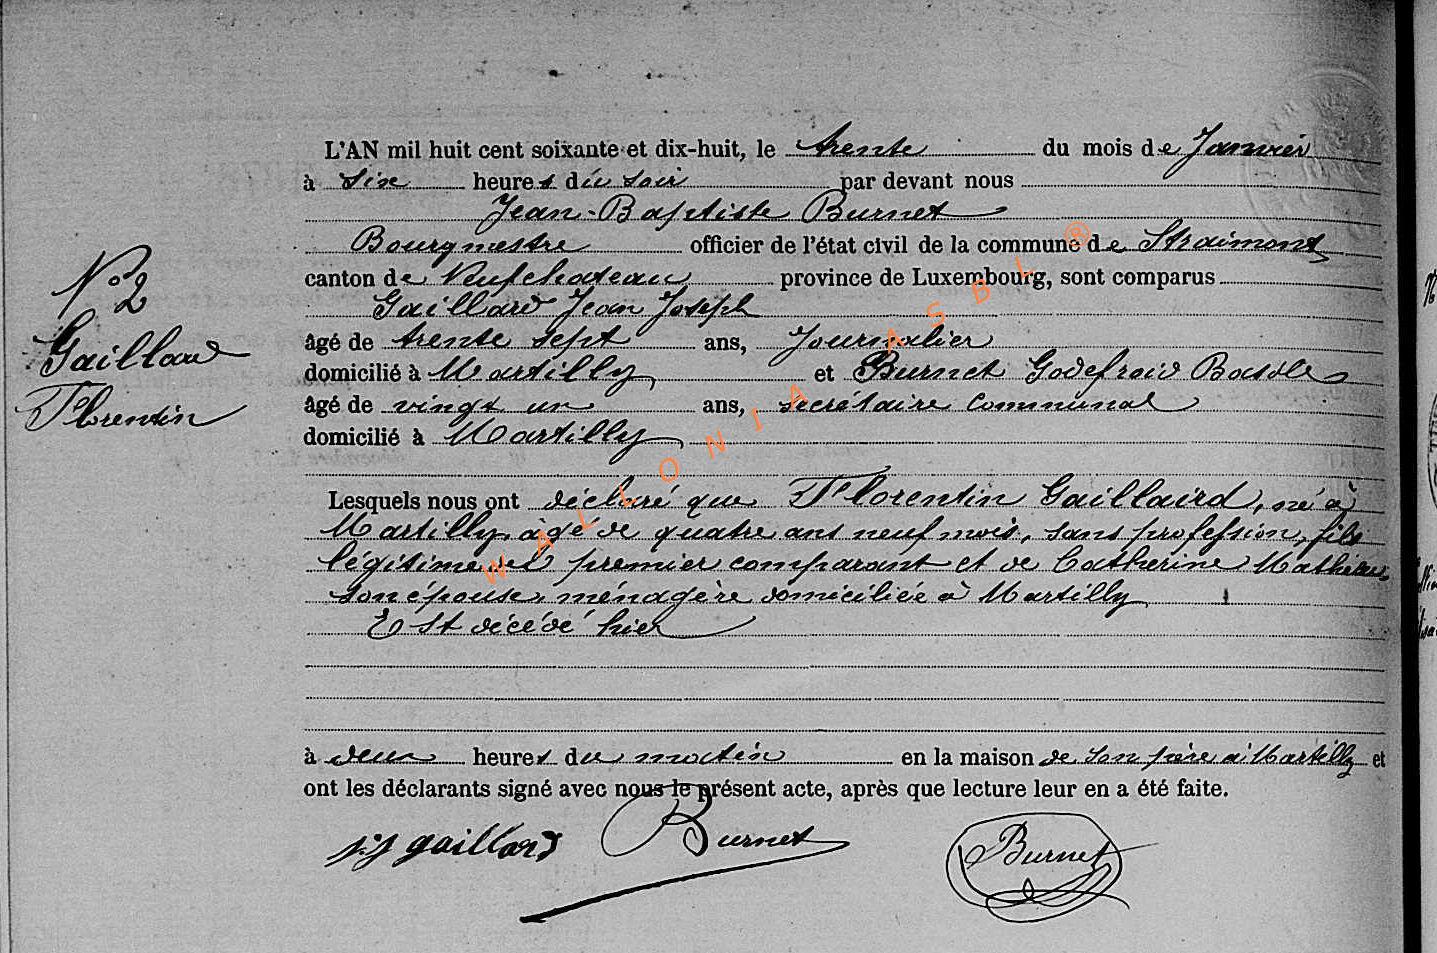 L'AN mil huit cent soixante et dix-huit, le trente du mois de Janvier
à six heures du soir par devant nous
Jean-Baptiste Burnet
Bourgmestre officier de l'état civil de la commune de Straimont
canton de Neufchateau province de Luxembourg, sont comparus
Gaillard Jean Joseph
âgé de trente sept ans, Journalier
domicilié à Martilly et Burnet Godefroid Basile
âgé de vingt un ans, secrétaire communal
domicilié à Martilly
N° 2
Gaillard
Florentin
Lesquels nous ont déclaré que Florentin Gaillaird, né à
Martilly, âgé de quatre ans neuf mois, sans profession, fils
légitime du premier comparant et de Catherine Mathieu,
son épouse, ménagère domiciliée à Martilly
Est décédé hier
à deux heures du matin en la maison de son père à Martilly et
ont les déclarants signé avec nous le présent acte, après que lecture leur en a été faite.
j.j gaillard Burnet Burnet
WALLONIA ASBL ®